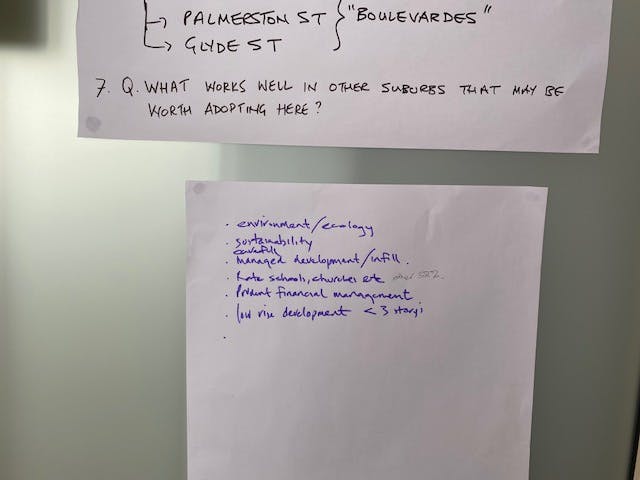 → PALMERSTON ST } "BOULEVARDES"
→ GLYDE ST
7. Q. WHAT WORKS WELL IN OTHER SUBURBS THAT MAY BE
WORTH ADOPTING HERE?
· environment/ecology
· sustainability
careful
· managed development/infill.
· Rate schools, churches etc
· Prudent financial management.
· low rise development < 3 storys
·